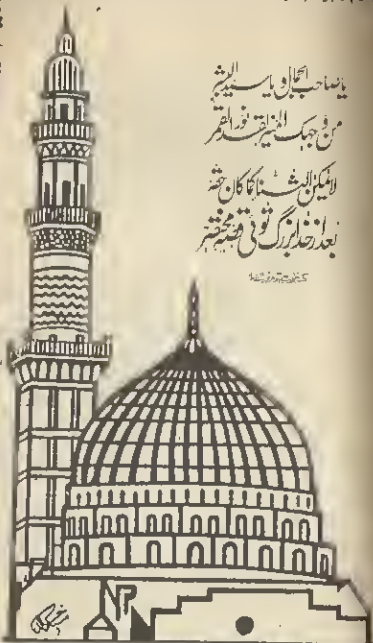 یا صاحب الجمال و یا سید البشر
من وجہک المنیر لقد نور القمر
لا یمکن الثناء کما کان حقہ
بعد از خدا بزرگ توئی قصہ مختصر
NP